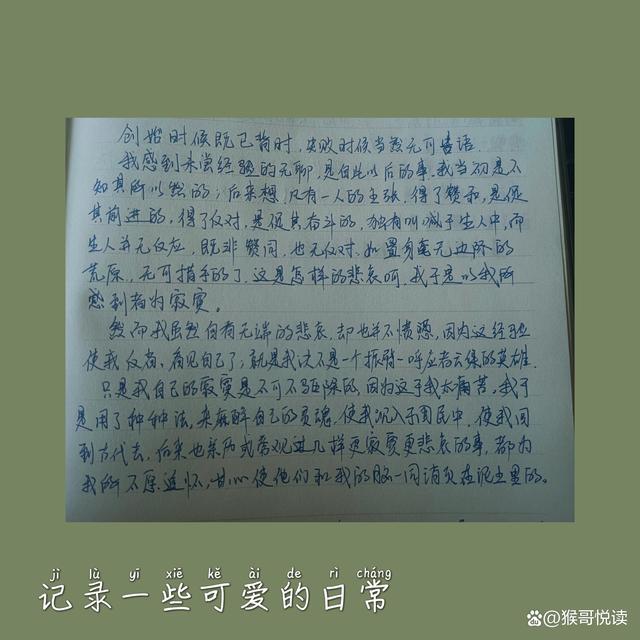 创始时候既已背时，失败时候当然无可告语
我感到未尝经验的无聊，是自此以后的事。我当初是不
知其所以然的；后来想，凡有一人的主张，得了赞和，是促
其前进的，得了反对，是促其奋斗的，独有叫喊于生人中，而
生人并无反应，既非赞同，也无反对，如置身毫无边际的
荒原，无可措手的了，这是怎样的悲哀呵，我于是以我所
感到者为寂寞。
然而我虽然自有无端的悲哀，却也并不愤懑，因为这经验
使我反省，看见自己了：就是我决不是一个振臂一呼应者云集的英雄.
只是我自己的寂寞是不可不驱除的，因为这于我太痛苦。我于
是用了种种法，来麻醉自己的灵魂，使我沉入于国民中，使我回
到古代去，后来也亲历或旁观过几样更寂寞更悲哀的事，都为
我所不愿追怀，甘心使他们和我的脑一同消灭在泥土里的。
jì lù yī xiē kě ài de rì cháng
记录一些可爱的日常
@猴哥悦读